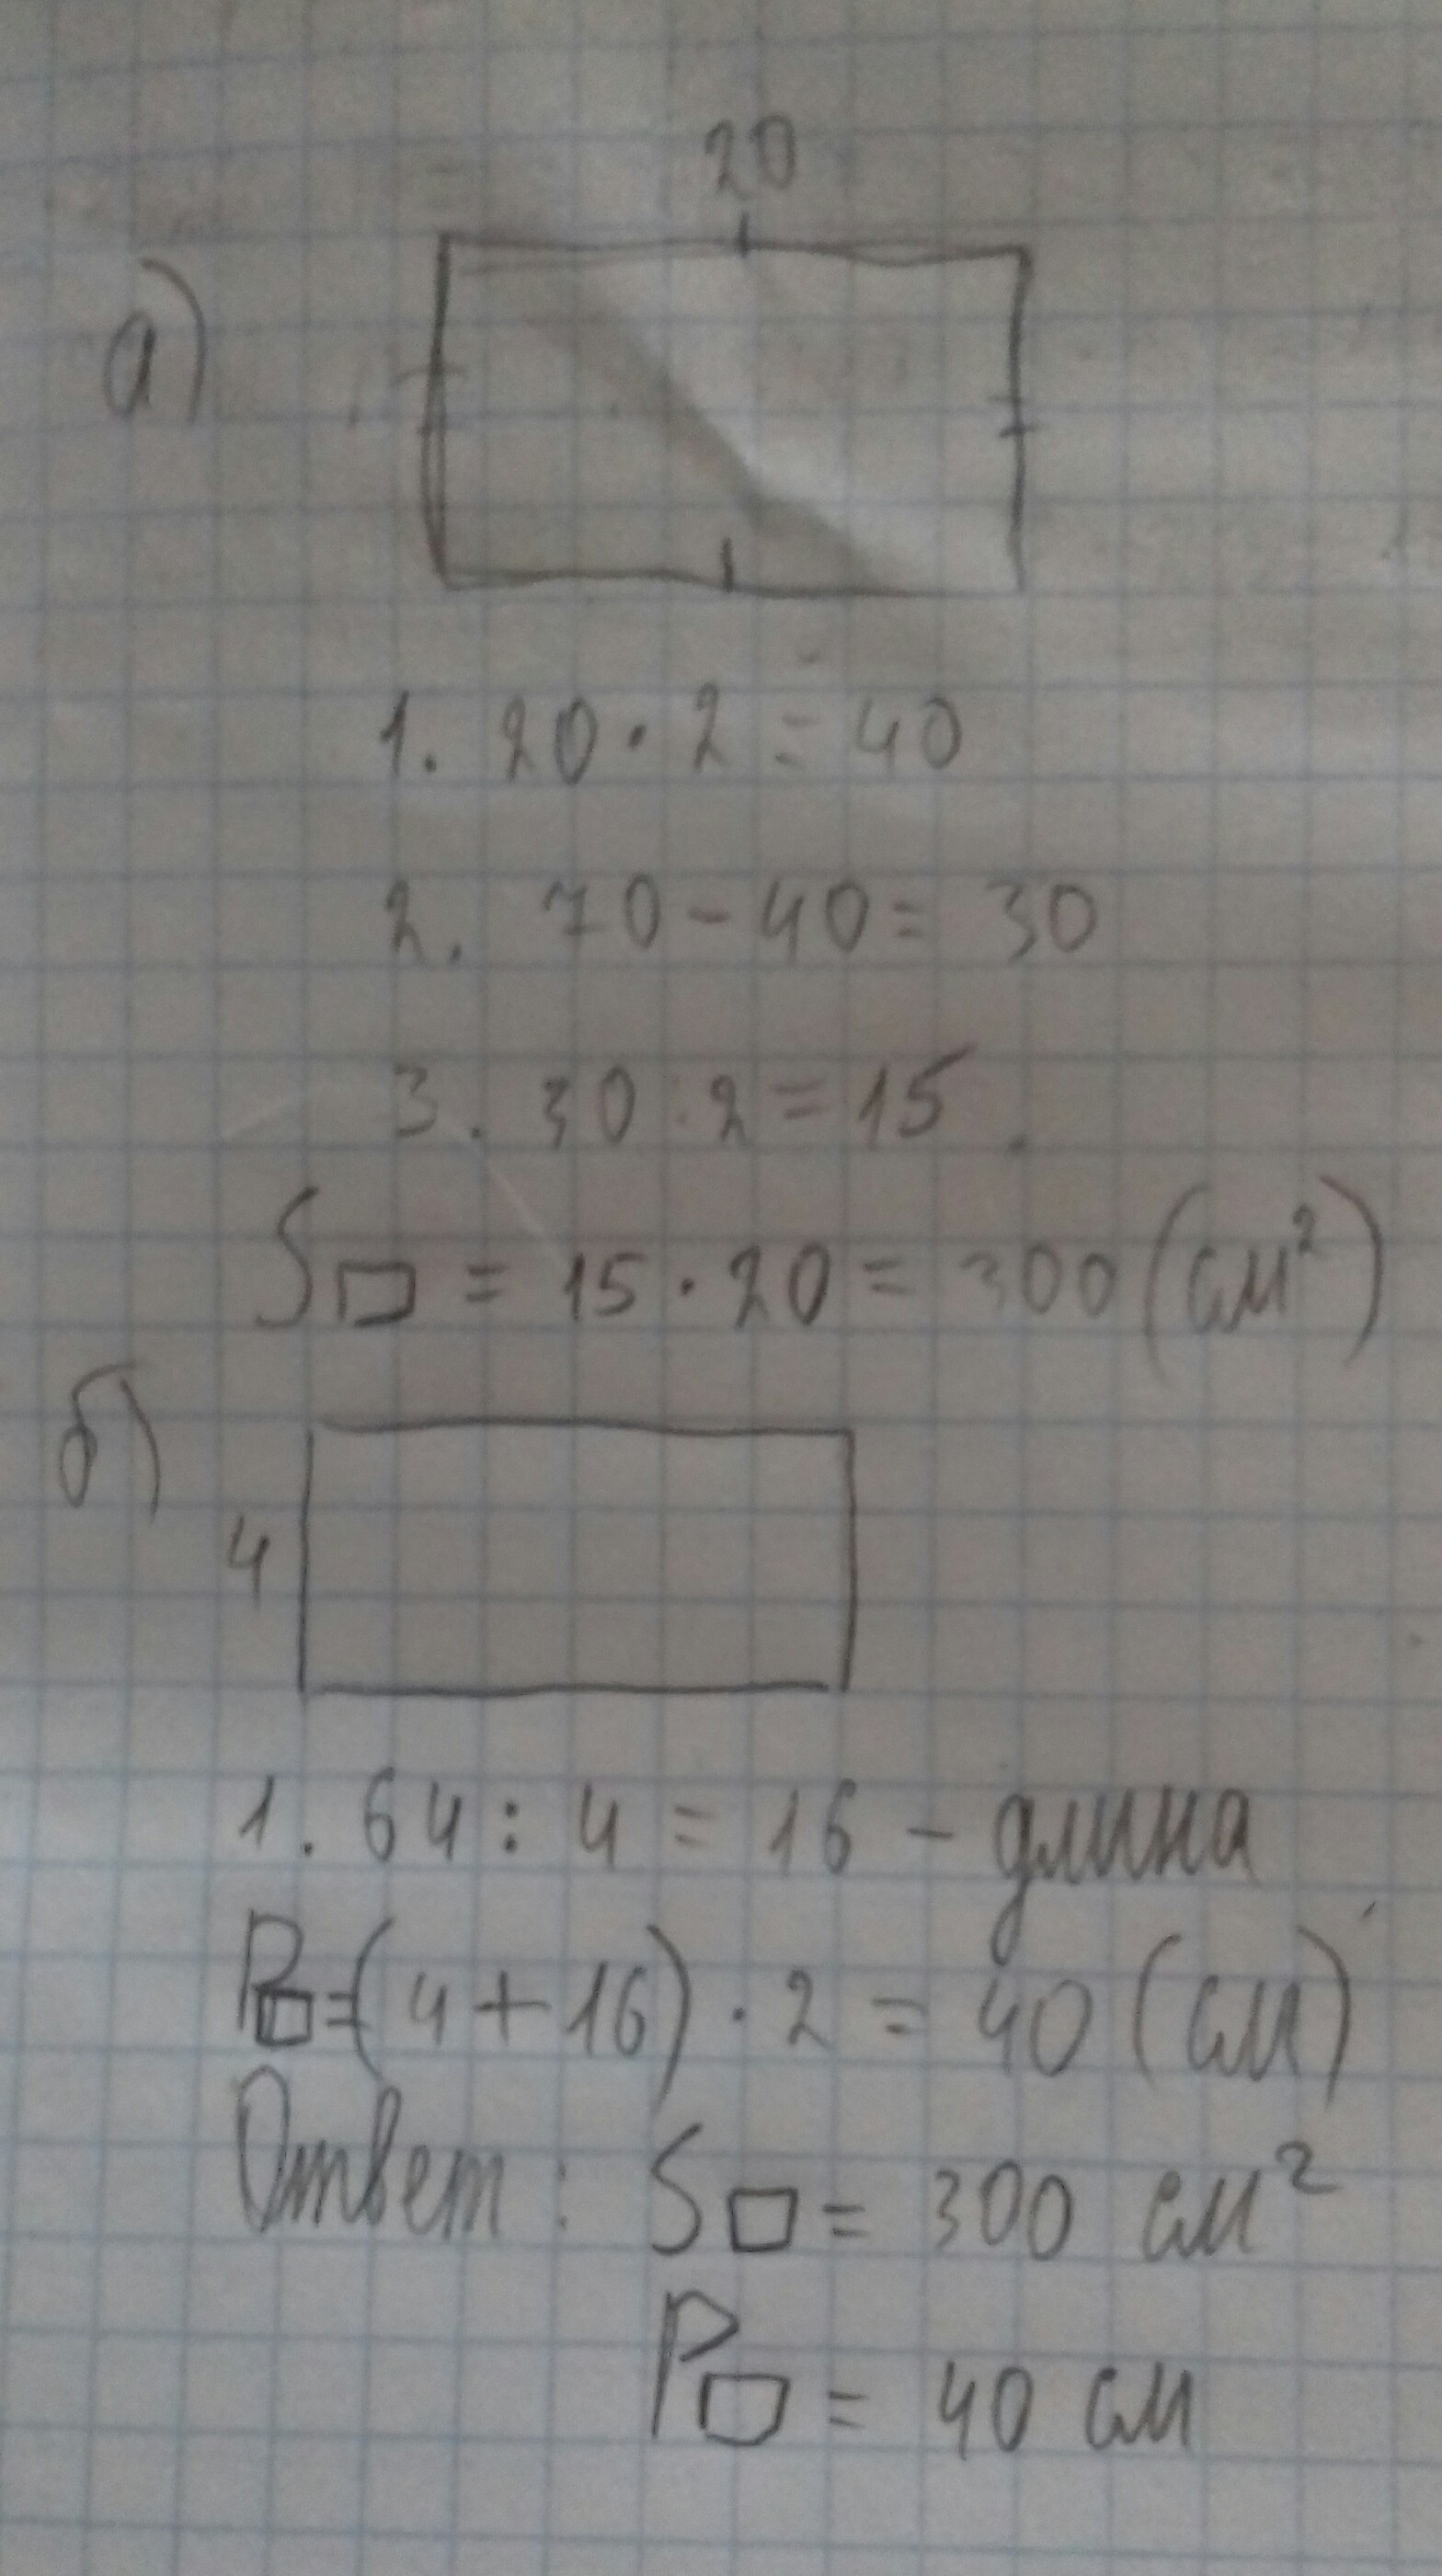 20
а)
1. 20 · 2 = 40
2. 70 - 40 = 30
3. 30 : 2 = 15.
S▭ = 15 · 20 = 300 (см²)
б)
4
1. 64 : 4 = 16 - длина
P▭ = (4 + 16) · 2 = 40 (см)
Ответ: S▭ = 300 см²
P▭ = 40 см